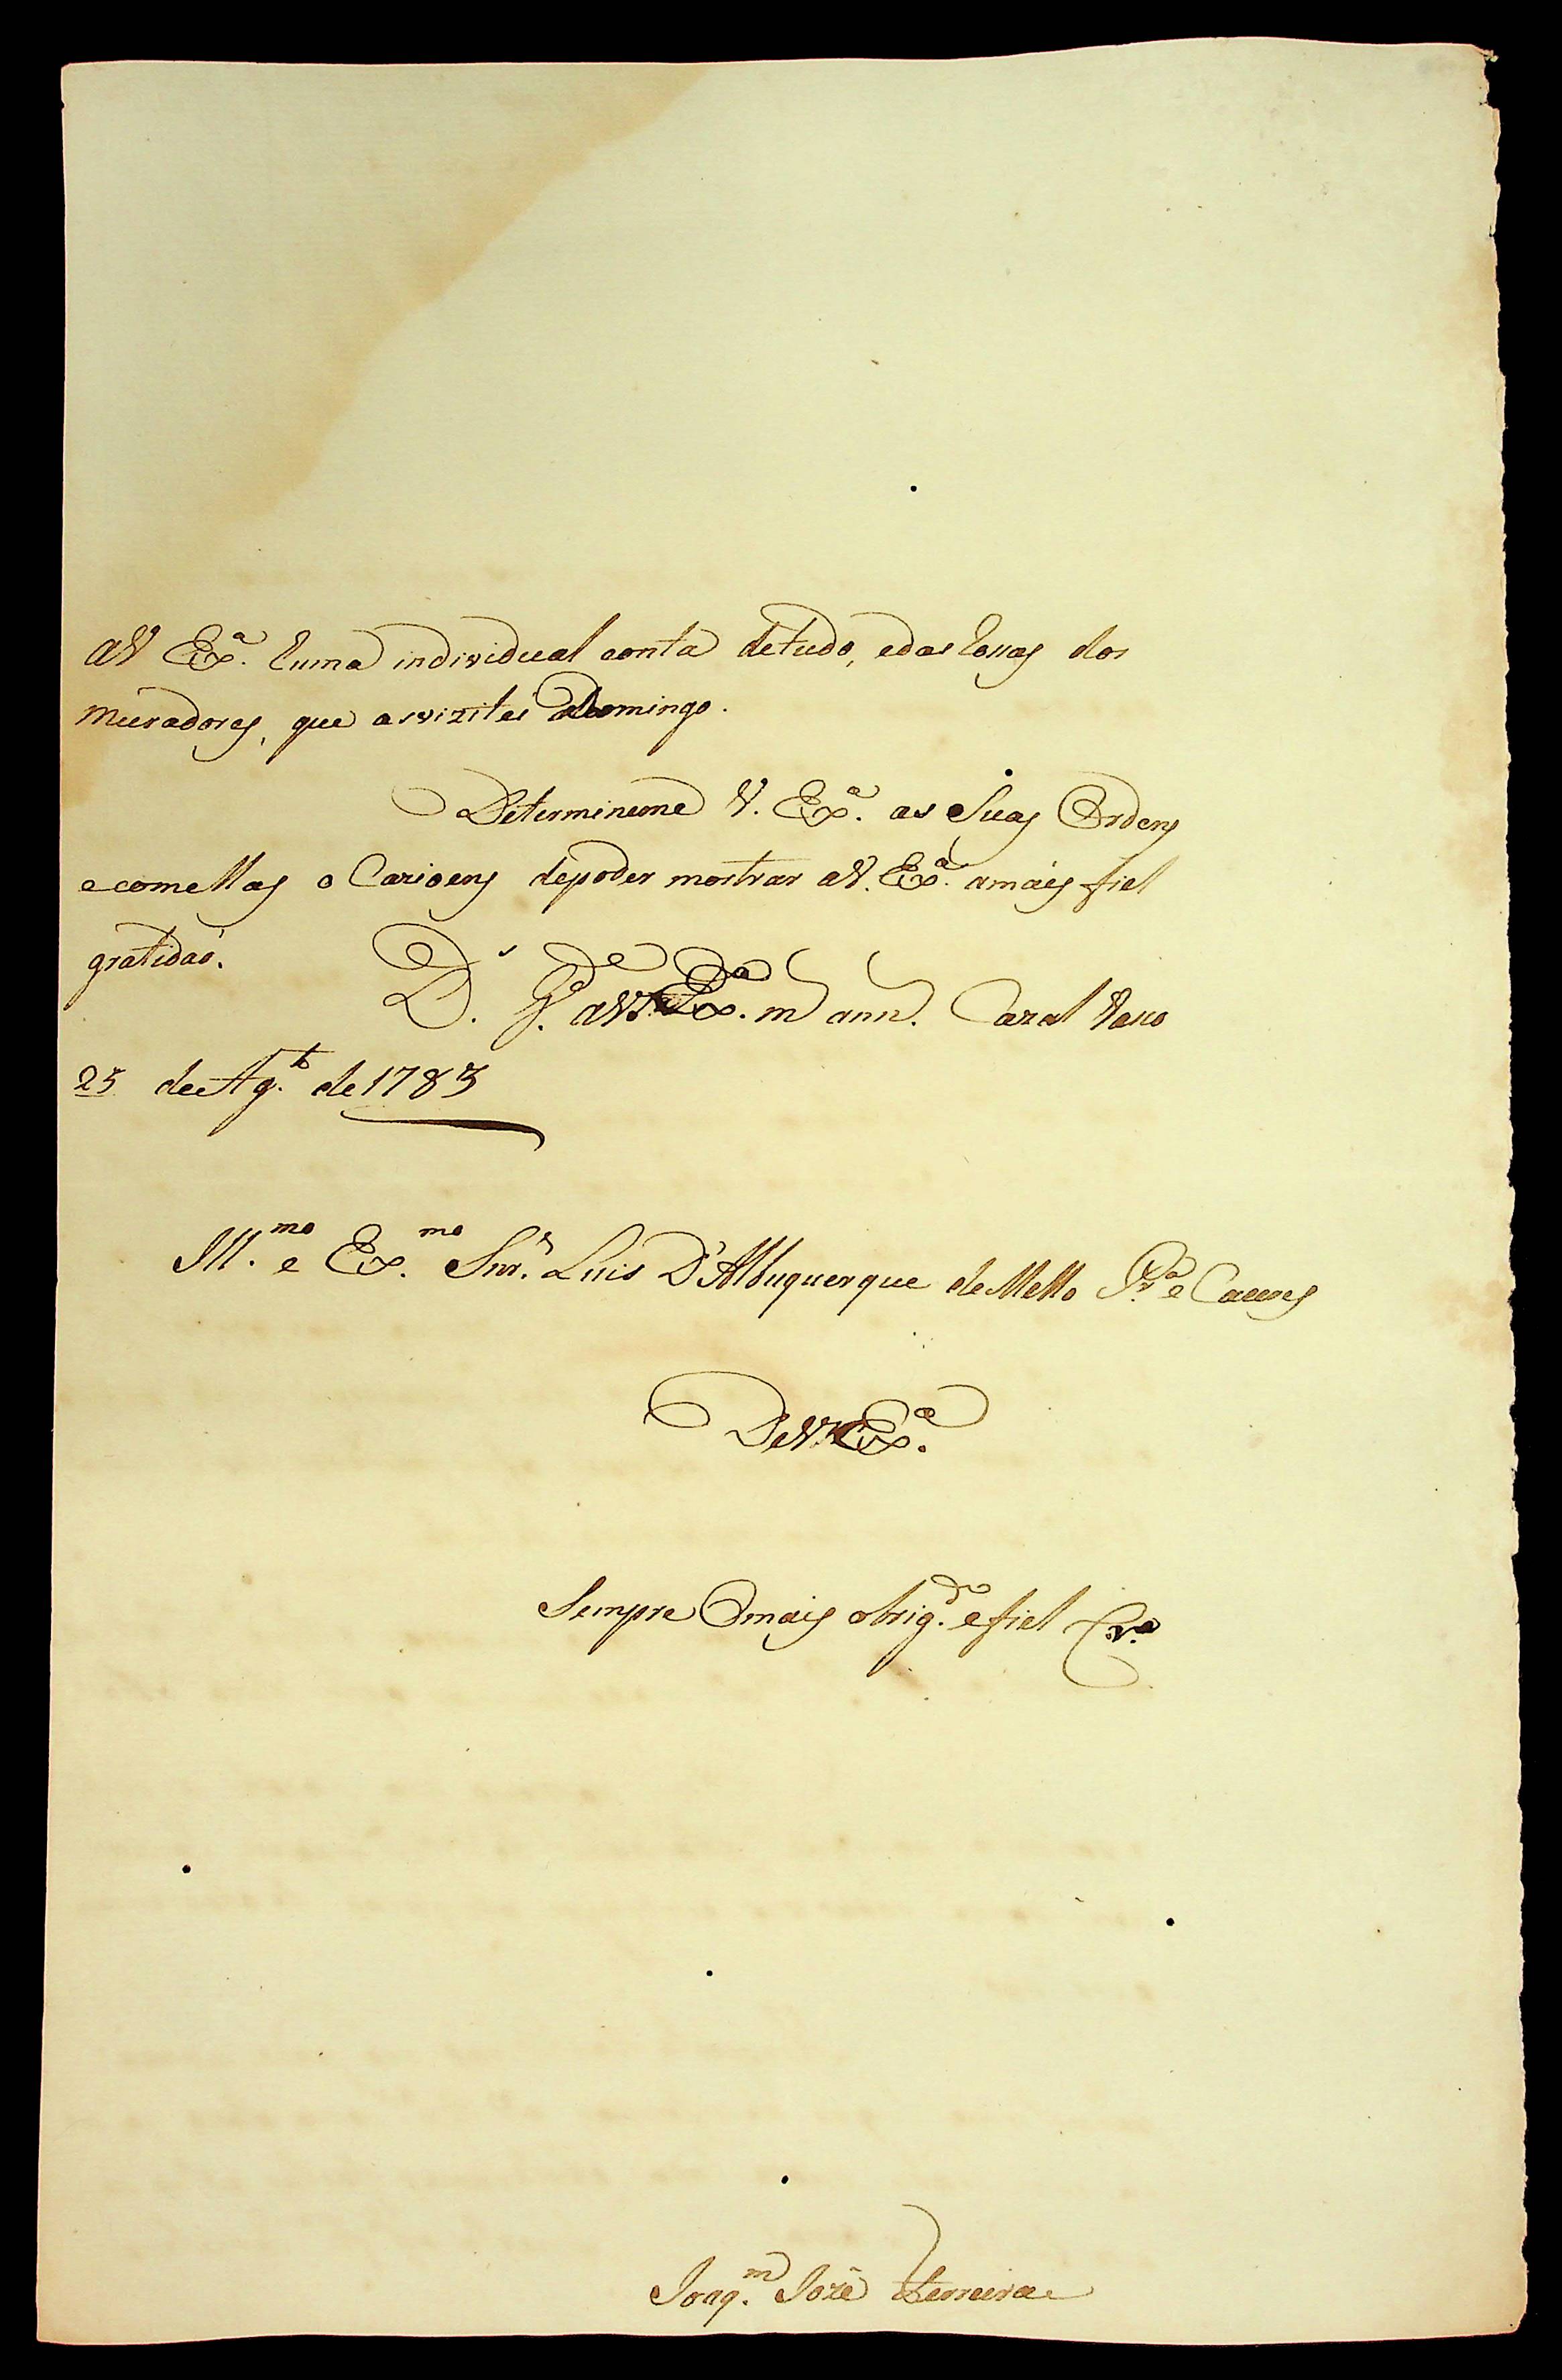 aV Ex.ª huma individual conta detudo, edas Rossas dos
muradores, que asvizitei Domingo.
Determineme V. Ex.ª as Suas Ordens
ecomellas o Carioens depoder mostrar aV. Ex.ª amais fiel
gratidaõ.
D.s g.de aV. Ex.ª m ann. Cazal Vasco
25 de Ag.to de 1783
Ill.mo e Ex.mo Snr. Luis D'Albuquerque deMello Pr.ª e Caceres
DeV. Ex.ª
Sempre Omais obrig.do efiel Cr.º
Joaq.m Jozé Ferreira